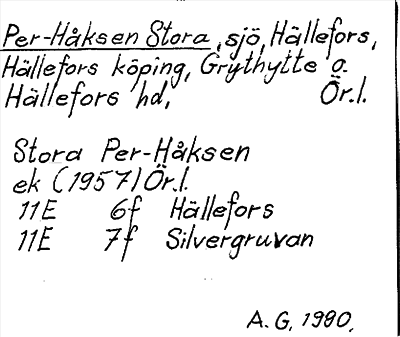 Per-Håksen Stora, sjö, Hällefors,
Hällefors köping, Grythytte o.
Hällefors hd, Ör.l.
Stora Per-Håksen
ek (1957) Ör.l.
11E 6f Hällefors
11E 7f Silvergruvan
A.G. 1990.